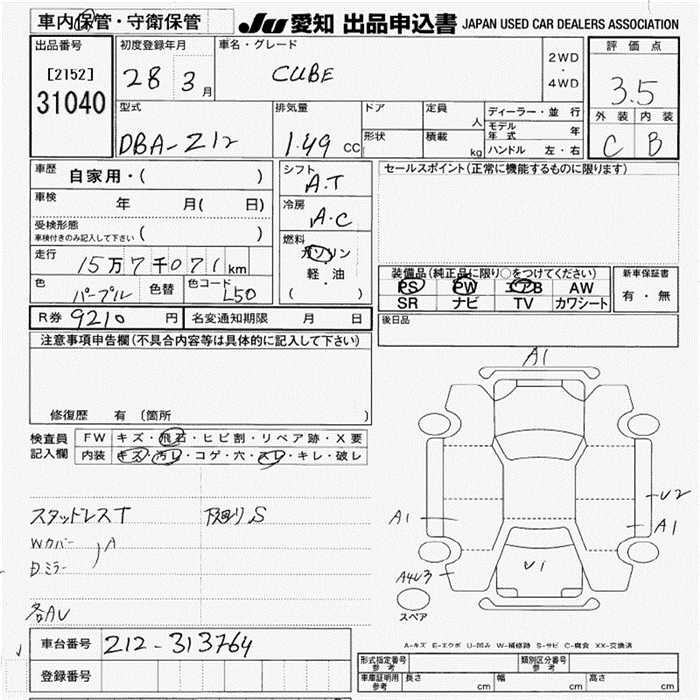 車内保管・守衛保管
JU 愛知 出品申込書 JAPAN USED CAR DEALERS ASSOCIATION
出品番号
[2152]
31040
初度登録年月
28 3月
車名・グレード
CUBE
2WD
・
4WD
評価点
3.5
外装 内装
C B
型式
DBA-Z12
排気量
1.49 CC
ドア
形状
定員 人
積載 kg
ディーラー・並行
モデル年式 年
ハンドル 左・右
車歴 自家用・( )
車検 年 月( 日)
受検形態
車検付きのみ記入して下さい ( )
走行 15万7千071km
色 パープル 色替 色コード L50
シフト
A.T
冷房
A.C
燃料
ガソリン
軽・油
( )
セールスポイント(正常に機能するものに限ります)
装備品(純正品に限り○をつけてください)
PS PW エアB AW
SR ナビ TV カワシート
新車保証書
有・無
R券 9210 円 名変通知期限 月 日
後日品
注意事項申告欄(不具合内容等は具体的に記入して下さい)
修復歴 有 (箇所 )
検査員
記入欄
FW キズ・飛石・ヒビ割・リペア跡・X要
内装 キズ・汚レ・コゲ・穴・スレ・キレ・破レ
スタッドレスT 下廻りS
Wカバー
Dミラー
A
各AU
A1
U2
A1
A1
U1
A4U3
スペア
車台番号 Z12-313764
登録番号
A-キズ E-エクボ U-凹み W-補修跡 S-サビ C-腐食 XX-交換済
形式指定番号 参考
類別区分番号 参考
車庫証明用 参考 長さ cm 幅 cm 高さ cm